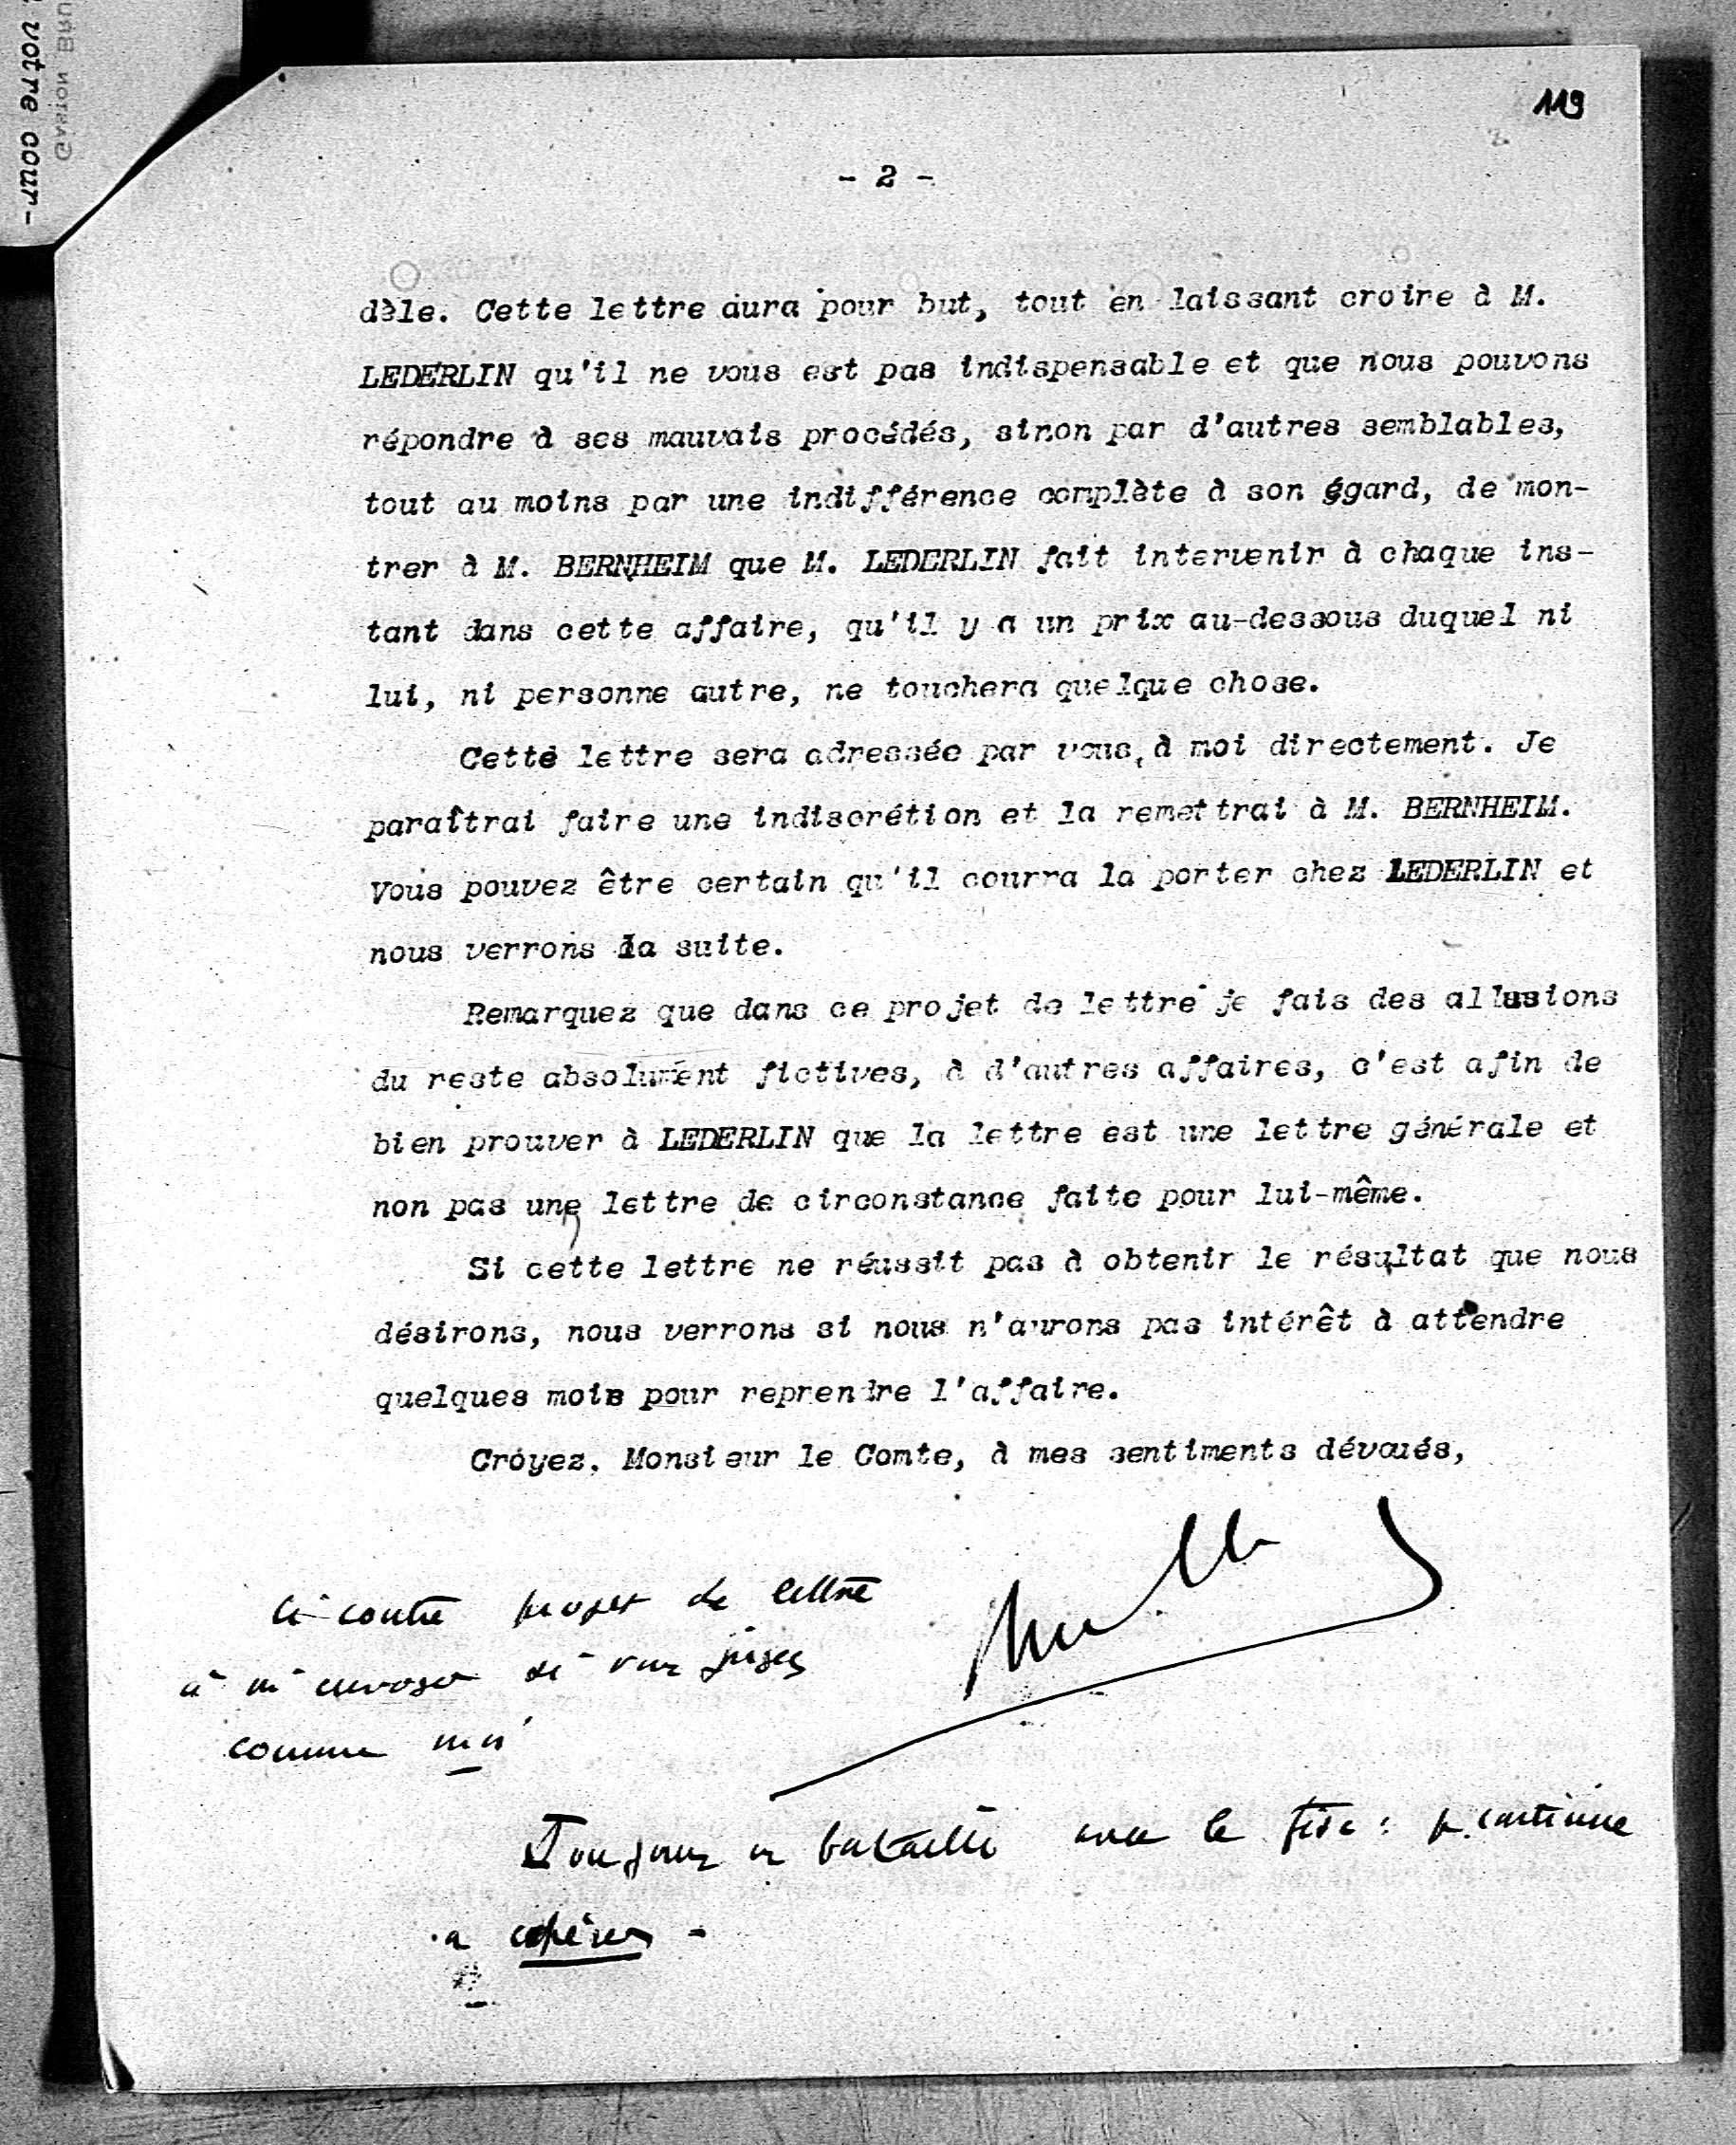 votre cour-
119
- 2 -
dèle. Cette lettre aura pour but, tout en laissant croire à M.
LEDERLIN qu'il ne vous est pas indispensable et que nous pouvons
répondre à ses mauvais procédés, sinon par d'autres semblables,
tout au moins par une indifférence complète à son égard, de mon-
trer à M. BERNHEIM que M. LEDERLIN fait intervenir à chaque ins-
tant dans cette affaire, qu'il y a un prix au-dessous duquel ni
lui, ni personne autre, ne touchera quelque chose.
Cette lettre sera adressée par vous, à moi directement. Je
paraîtrai faire une indiscrétion et la remettrai à M. BERNHEIM.
Vous pouvez être certain qu'il courra la porter chez LEDERLIN et
nous verrons la suite.
Remarquez que dans ce projet de lettre je fais des allusions
du reste absolument fictives, à d'autres affaires, c'est afin de
bien prouver à LEDERLIN que la lettre est une lettre générale et
non pas une lettre de circonstance faite pour lui-même.
Si cette lettre ne réussit pas à obtenir le résultat que nous
désirons, nous verrons si nous n'aurons pas intérêt à attendre
quelques mois pour reprendre l'affaire.
Croyez, Monsieur le Comte, à mes sentiments dévoués,
Ci contre projet de lettre
à m'envoyer si vous jugez
comme moi
Toujours en bataille avec le fisc : je continue
a espérer -